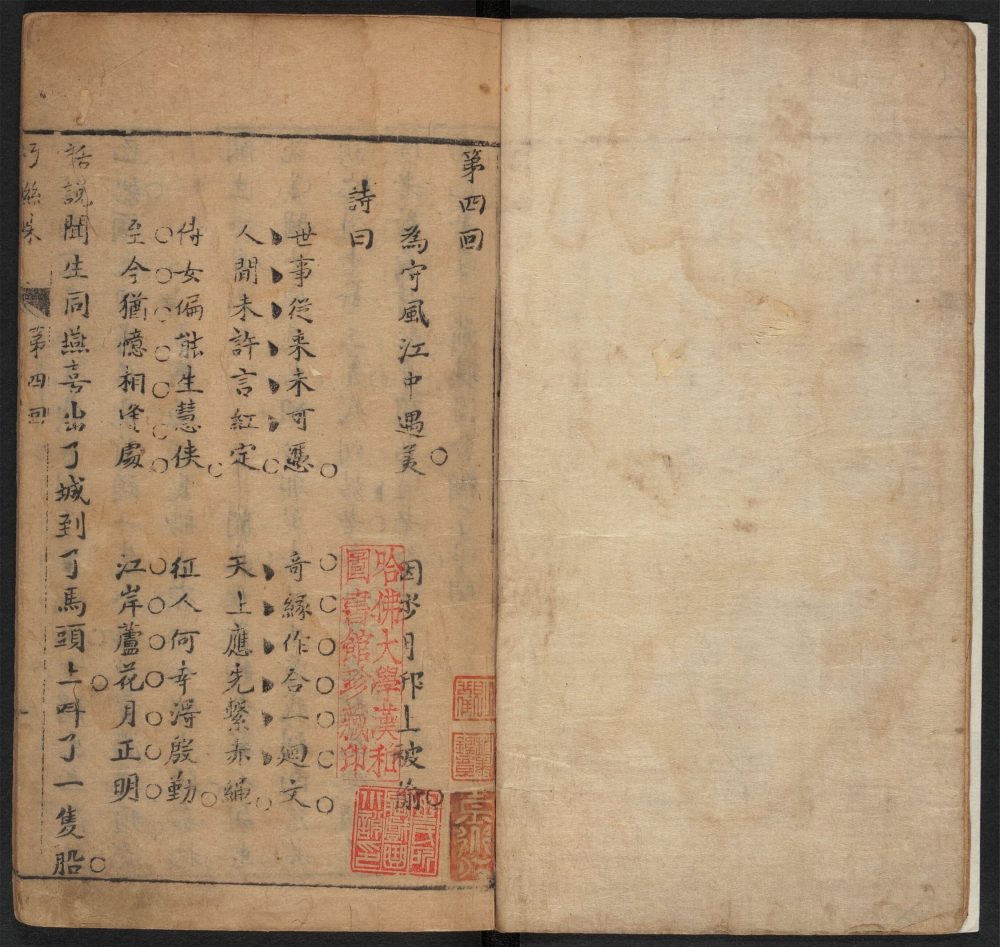 第四回
為守風江中遇美 因步月邸上被偷
詩曰
世事從來未可憑 奇緣作合一廻文
人間未許言紅定 天上應先繫赤繩
侍女偏能生慧俠 征人何幸得殷勤
至今猶憶相逢處 江岸蘆花月正明
話說聞生同燕喜出了城到了馬頭上呌了一隻船
巧緣 第四回
哈佛大學漢和
圖書館珍藏印